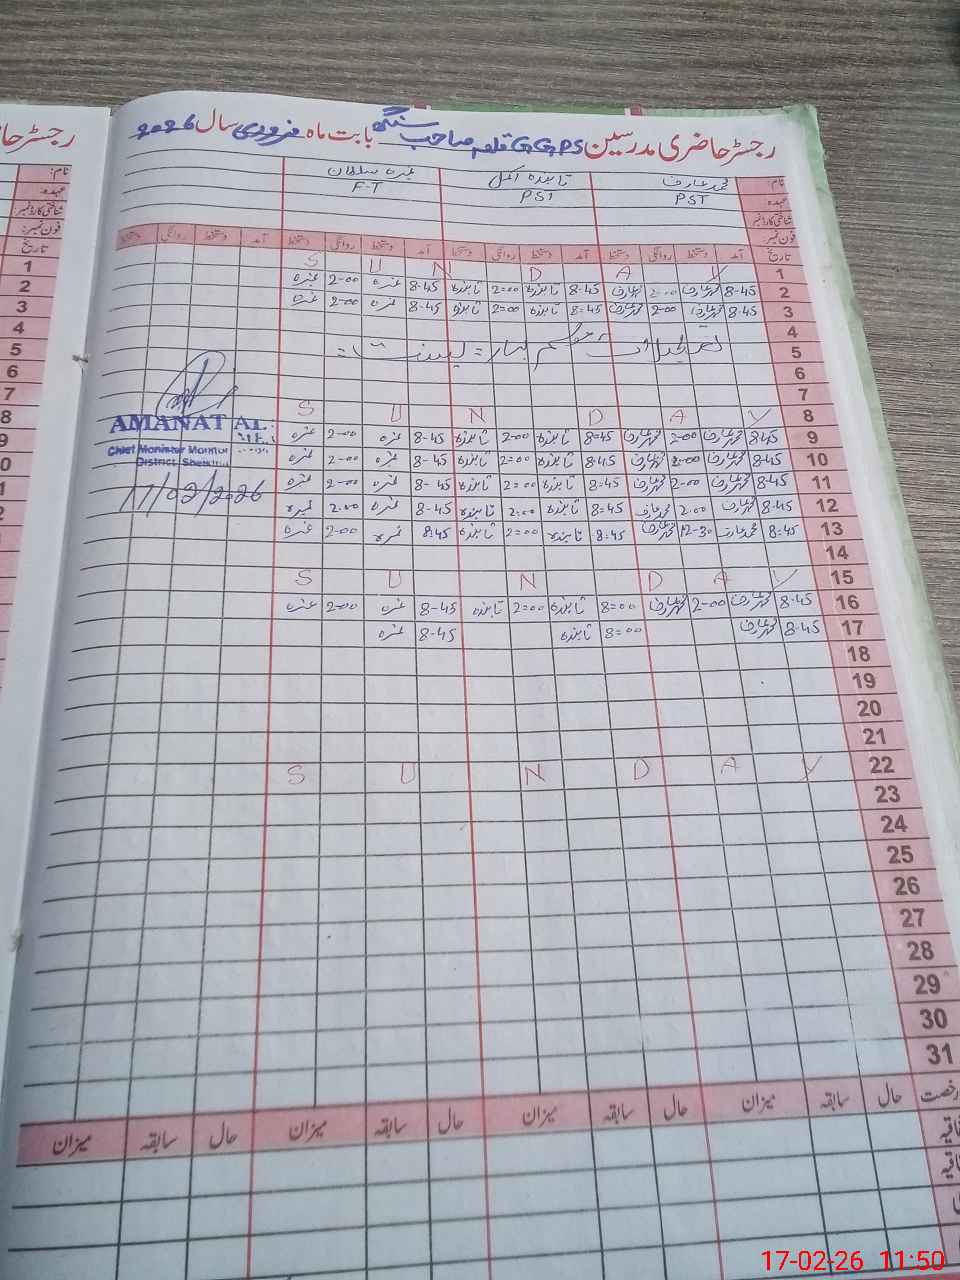 رجسٹر حاضری مدرسین GGPS قلعہ صاحب سنگھ بابت ماہ فروری سال 2026
نام: محمد عارف تابندہ اکمل
عہدہ: PST PST F-T
شناختی کارڈ نمبر:
فون نمبر:
تاریخ آمد دستخط روانگی دستخط آمد دستخط روانگی دستخط آمد دستخط روانگی دستخط آمد دستخط روانگی دستخط
1 S U N D A Y
2 8-45 محمد عارف 2-00 محمد عارف 8-45 تابندہ 2=00 تابندہ 8-45 عنزہ 2-00 عنزہ
3 8-45 محمد عارف 2-00 محمد عارف 8=45 تابندہ 2=00 تابندہ 8-45 عنزہ 2-00 عنزہ
4
5
6
7
8 S U N D A Y
9 8-45 محمد عارف 2-00 محمد عارف 8=45 تابندہ 2-00 تابندہ 8-45 عنزہ 2-00 عنزہ
10 8-45 محمد عارف 2-00 محمد عارف 8=45 تابندہ 2=00 تابندہ 8-45 عنزہ 2-00 عنزہ
11 8-45 محمد عارف 2-00 محمد عارف 8=45 تابندہ 2=00 تابندہ 8-45 عنزہ 2-00 عنزہ
12 8-45 محمد عارف 2-00 محمد عارف 8=45 تابندہ 2=00 تابندہ 8-45 عنزہ 2-00 عنزہ
13 8-45 محمد عارف 12-30 محمد عارف 8=45 تابندہ 2=00 تابندہ 8-45 عنزہ 2-00 عنزہ
14
15 S U N D A Y
16 8-45 محمد عارف 2-00 محمد عارف 8=00 تابندہ 2=00 تابندہ 8-45 عنزہ 2-00 عنزہ
17 8-45 محمد عارف 8=00 تابندہ 8-45 عنزہ
18
19
20
21
22 S U N D A Y
23
24
25
26
27
28
29
30
31
رخصت حال سابقہ میزان حال سابقہ میزان حال سابقہ میزان حال سابقہ میزان
AMANAT AL
District
17/02/2026
رجسٹر حا
نام:
عہدہ:
شناختی کارڈ نمبر:
فون نمبر:
تاریخ
1
2
3
4
5
6
7
8
17-02-26 11:50